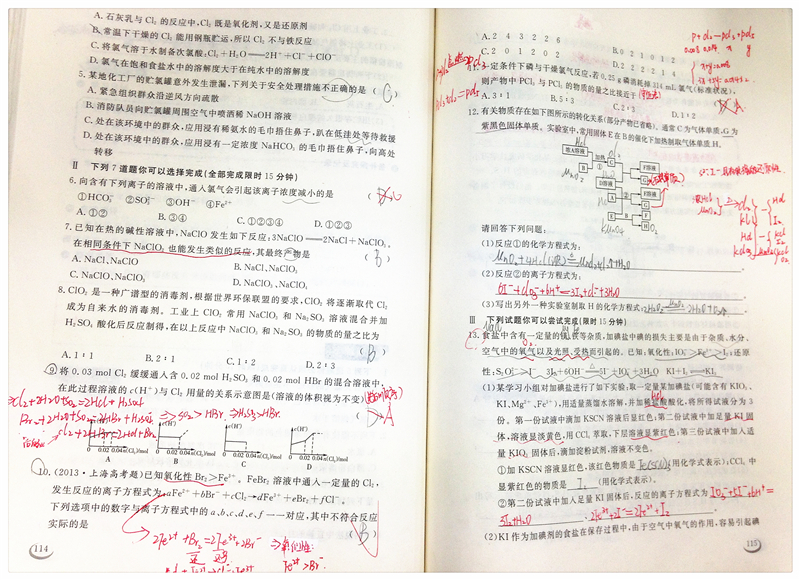 A. 石灰乳与 Cl₂ 的反应中,Cl₂ 既是氧化剂,又是还原剂
B. 常温下干燥的 Cl₂ 能用钢瓶贮运,所以 Cl₂ 不与铁反应
C. 将氯气溶于水制备次氯酸:Cl₂+H₂O══2H⁺+Cl⁻+ClO⁻
D. 氯气在饱和食盐水中的溶解度大于在纯水中的溶解度
5. 某地化工厂的贮氯罐意外发生泄漏,下列关于安全处理措施不正确的是 ( C )
A. 紧急组织群众沿逆风方向疏散
B. 消防队员向贮氯罐周围空气中喷洒稀 NaOH 溶液
C. 处在该环境中的群众,应用浸有稀氨水的毛巾捂住鼻子,趴在低洼处等待救援
D. 处在该环境中的群众,应用浸有一定浓度 NaHCO₃ 的毛巾捂住鼻子,向高处
转移
Ⅱ 下列 7 道题你可以选择完成(全部完成限时 15 分钟)
6. 向含有下列离子的溶液中,通入氯气会引起该离子浓度减小的是
①HCO₃⁻ ②SO₃²⁻ ③OH⁻ ④Fe²⁺
A. ①② B. ③④ C. ①②③④ D. ①②③
7. 已知在热的碱性溶液中,NaClO 发生如下反应:3NaClO──2NaCl+NaClO₃。
在相同条件下 NaClO₂ 也能发生类似的反应,其最终产物是 ( B )
A. NaCl、NaClO B. NaCl、NaClO₃
C. NaClO、NaClO₃ D. NaClO₃、NaClO₄
8. ClO₂ 是一种广谱型的消毒剂,根据世界环保联盟的要求,ClO₂ 将逐渐取代 Cl₂
成为自来水的消毒剂。工业上 ClO₂ 常用 NaClO₃ 和 Na₂SO₃ 溶液混合并加
H₂SO₄ 酸化后反应制得,在以上反应中 NaClO₃ 和 Na₂SO₃ 的物质的量之比为
( B )
A. 1∶1 B. 2∶1 C. 1∶2 D. 2∶3
9. 将 0.03 mol Cl₂ 缓缓通入含 0.02 mol H₂SO₃ 和 0.02 mol HBr 的混合溶液中,
在此过程溶液的 c(H⁺)与 Cl₂ 用量的关系示意图是(溶液的体积视为不变)
Cl₂+2H₂O+SO₂=2HCl+H₂SO₄
Br₂+2H₂O+SO₂=2HBr+H₂SO₄ ⇒SO₂>HBr
Cl₂+2HBr=2HCl+Br₂
c(H⁺) c(H⁺) c(H⁺) c(H⁺)
0 0.02 0.04 Cl₂/mol 0 0.02 0.04 Cl₂/mol 0 0.02 0.04 Cl₂/mol 0 0.02 0.04 Cl₂/mol
A B C D
10. (2013·上海高考题)已知氧化性 Br₂>Fe³⁺。FeBr₂ 溶液中通入一定量的 Cl₂,
发生反应的离子方程式为:aFe²⁺+bBr⁻+cCl₂→dFe³⁺+eBr₂+fCl⁻。
下列选项中的数字与离子方程式中的 a、b、c、d、e、f 一一对应,其中不符合反应
实际的是 ( B )
2Fe²⁺+Br₂=2Fe³⁺+2Br⁻ ⇒氧化性:
Fe³⁺
114
A. 2 4 3 2 2 6 B. 0 2 1 0 1 2
C. 2 0 1 2 0 2 D. 2 2 2 2 1 4
11. 一定条件下磷与干燥氯气反应,若 0.25 g 磷消耗掉 314 mL 氯气(标准状况),
则产物中 PCl₃ 与 PCl₅ 的物质的量之比接近于
A. 3∶1 B. 5∶3 C. 2∶3 D. 1∶2
12. 有关物质存在如下图所示的转化关系(部分产物已省略)。通常 C 为气体单质,G 为
紫黑色固体单质。实验室中,常用固体 E 在 B 的催化下加热制取气体单质 H。
浓A溶液 加热 C F溶液
B ① ② G
D溶液
A ③ C
E ④ F
E B H
KMnO₄
请回答下列问题:
(1)反应①的化学方程式为:
MnO₂+4HCl(浓)══MnCl₂+Cl₂↑+2H₂O
(2)反应②的离子方程式:
6I⁻+ClO₃⁻+6H⁺══3I₂+Cl⁻+3H₂O
(3)写出另外一种实验室制取 H 的化学方程式:2H₂O₂══2H₂O+O₂↑
Ⅲ 下列试题你可以尝试完成(限时 15 分钟)
13. 食盐中含有一定量的镁、铁等杂质,加碘盐中碘的损失主要是由于杂质、水分、
空气中的氧气以及光照、受热而引起的。已知:氧化性:IO₃⁻>Fe³⁺>I₂;还原
性:S₂O₃²⁻>I⁻ 3I₂+6OH⁻══5I⁻+IO₃⁻+3H₂O KI+I₂══KI₃
(1)某学习小组对加碘盐进行了如下实验:取一定量某加碘盐(可能含有 KIO₃、
KI、Mg²⁺、Fe³⁺),用适量蒸馏水溶解,并加稀盐酸酸化,将所得试液分为 3
份。第一份试液中滴加 KSCN 溶液后显红色;第二份试液中加足量 KI 固
体,溶液显淡黄色,用 CCl₄ 萃取,下层溶液显紫红色;第三份试液中加入适
量 KIO₃ 固体后,滴加淀粉试剂,溶液不变色。
①加 KSCN 溶液显红色,该红色物质是 Fe(SCN)₃ (用化学式表示);CCl₄ 中
显紫红色的物质是 I₂ (用化学式表示)。
②第二份试液中加入足量 KI 固体后,反应的离子方程式为 IO₃⁻+5I⁻+6H⁺=
3I₂+3H₂O 、 2Fe³⁺+2I⁻=2Fe²⁺+I₂ 。
(2)KI 作为加碘剂的食盐在保存过程中,由于空气中氧气的作用,容易引起碘
115